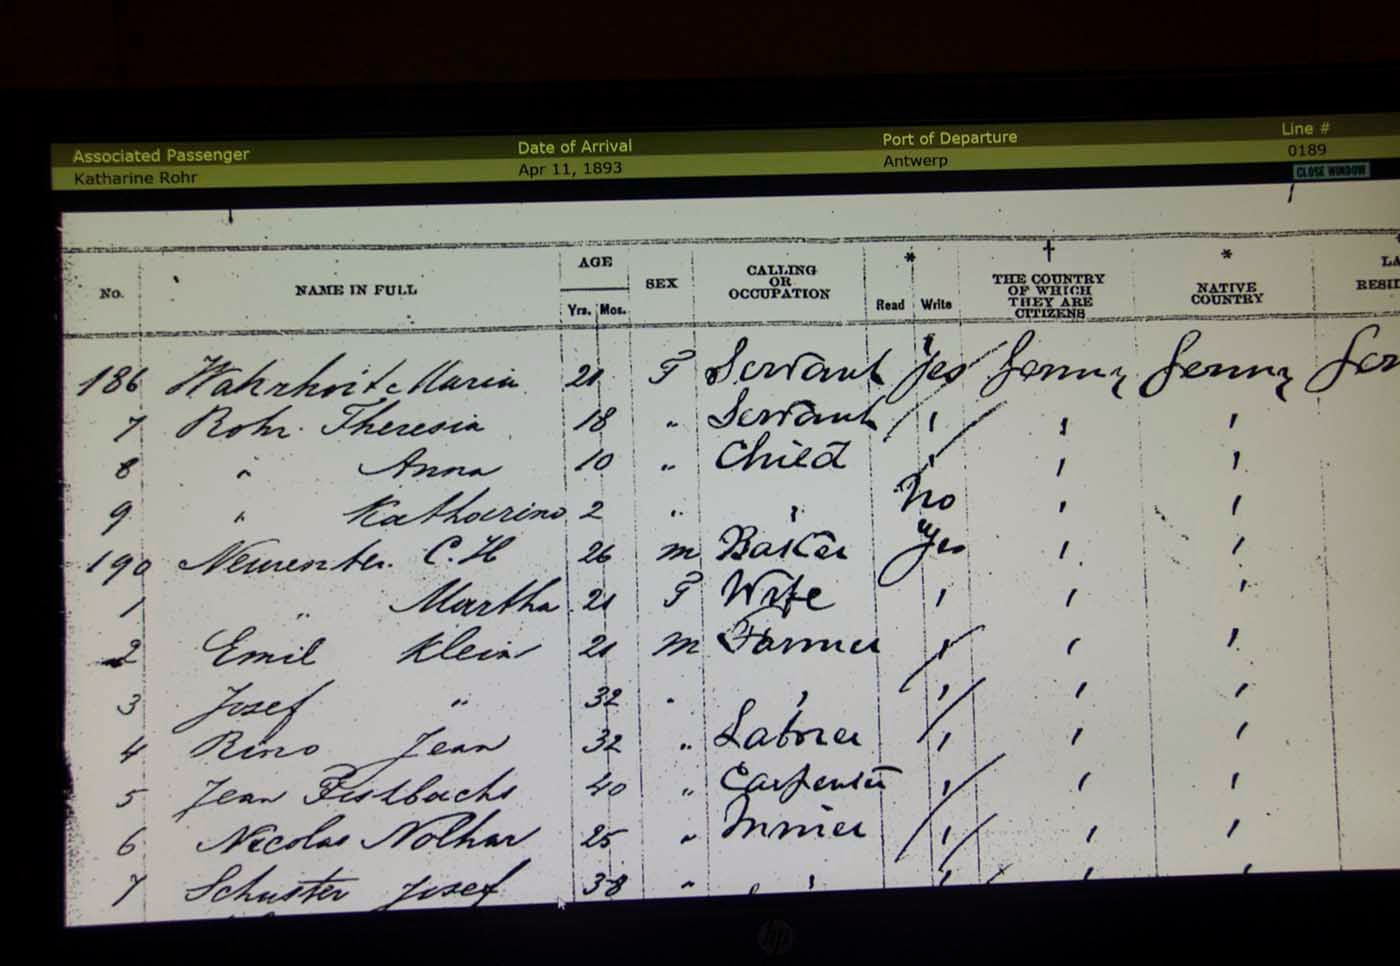 Associated Passenger Date of Arrival Port of Departure Line #
Katharine Rohr Apr 11, 1893 Antwerp 0189
CLOSE WINDOW
No. NAME IN FULL AGE Yrs. Mos. SEX CALLING OR OCCUPATION * Read Write † THE COUNTRY OF WHICH THEY ARE CITIZENS * NATIVE COUNTRY LA RESID
186 Maria 21 F Servant Yes Germ Germ Ger
7 Rohr Theresia 18 " Servant ' ' '
8 " Anna 10 " Child ' ' '
9 " Katharina 2 " ' No ' '
190 C. H 26 m Baker Yes ' '
1 " Martha 21 F Wife ' ' '
2 Emil Klein 21 m Farmer ' ' '
3 Josef " 32 " ' ' ' '
4 Jean 32 " Laborer ' ' '
5 Jean 40 " Carpenter ' ' '
6 Nicolas 25 " ' ' '
7 Schuster Josef 38 " ' ' ' '
hp